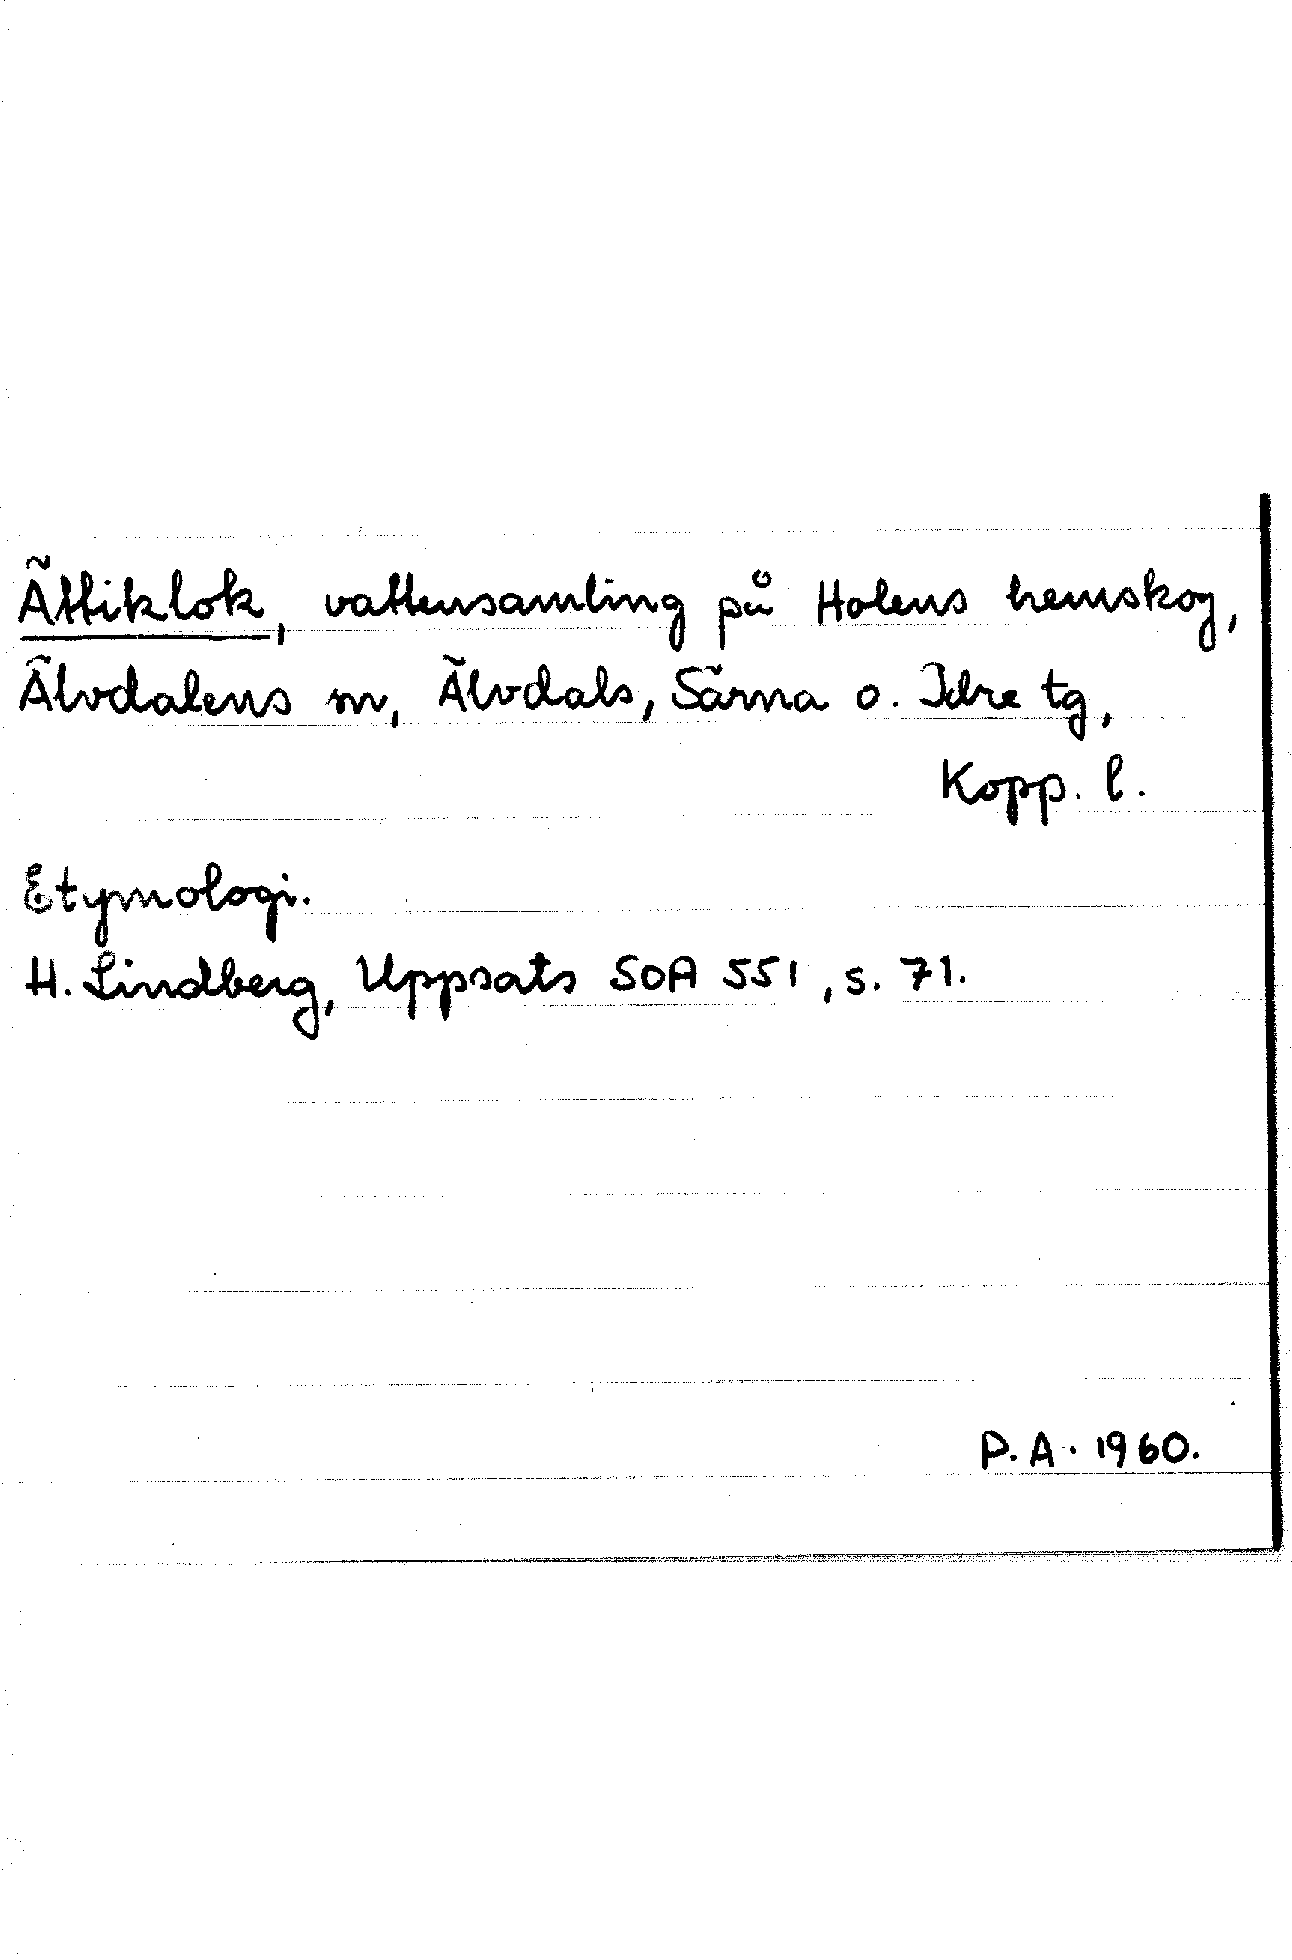 Ättiklok, vattensamling på Holens hemskog,
Älvdalens sn, Älvdals, Särna o. Idre tg,
Kopp. l.
Etymologi.
H. Lindberg, Uppsats SOA 551, s. 71.
P.A. 1960.